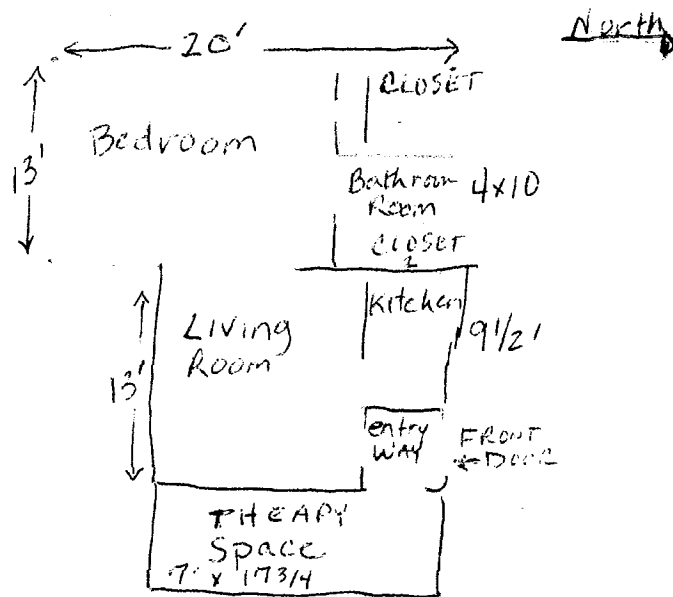 20'
North
CLOSET
Bedroom
13'
Bathroom
Room
4x10
CLOSET
2
Kitchen
9 1/2'
Living
Room
13'
entry
WAY
FRONT
DOOR
THEAPY
Space
7' x 17 3/4